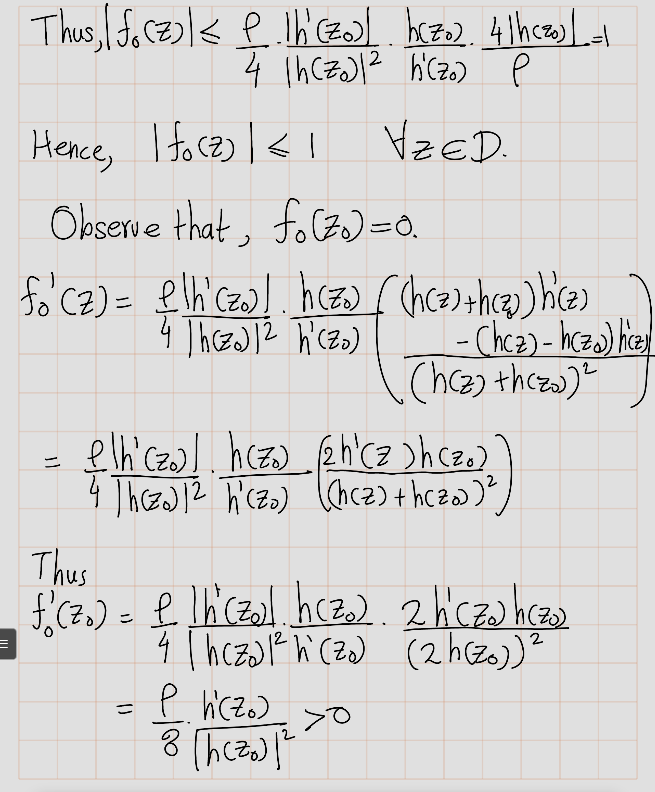 Thus, |f₀(z)| ≤ ρ/4 · |h'(z₀)|/|h(z₀)|² · h(z₀)/h'(z₀) · 4|h(z₀)|/ρ = 1
Hence, |f₀(z)| ≤ 1 ∀z∈D.
Observe that, f₀(z₀)=0.
f₀'(z) = ρ/4 |h'(z₀)|/|h(z₀)|² · h(z₀)/h'(z₀) (((h(z)+h(z₀))h'(z) - (h(z)-h(z₀))h'(z))/(h(z)+h(z₀))²)
= ρ/4 |h'(z₀)|/|h(z₀)|² · h(z₀)/h'(z₀) · (2h'(z)h(z₀)/(h(z)+h(z₀))²)
Thus
f₀'(z₀) = ρ/4 |h'(z₀)|/|h(z₀)|² · h(z₀)/h'(z₀) · 2h'(z₀)h(z₀)/(2h(z₀))²
= ρ/8 · h'(z₀)/|h(z₀)|² >0